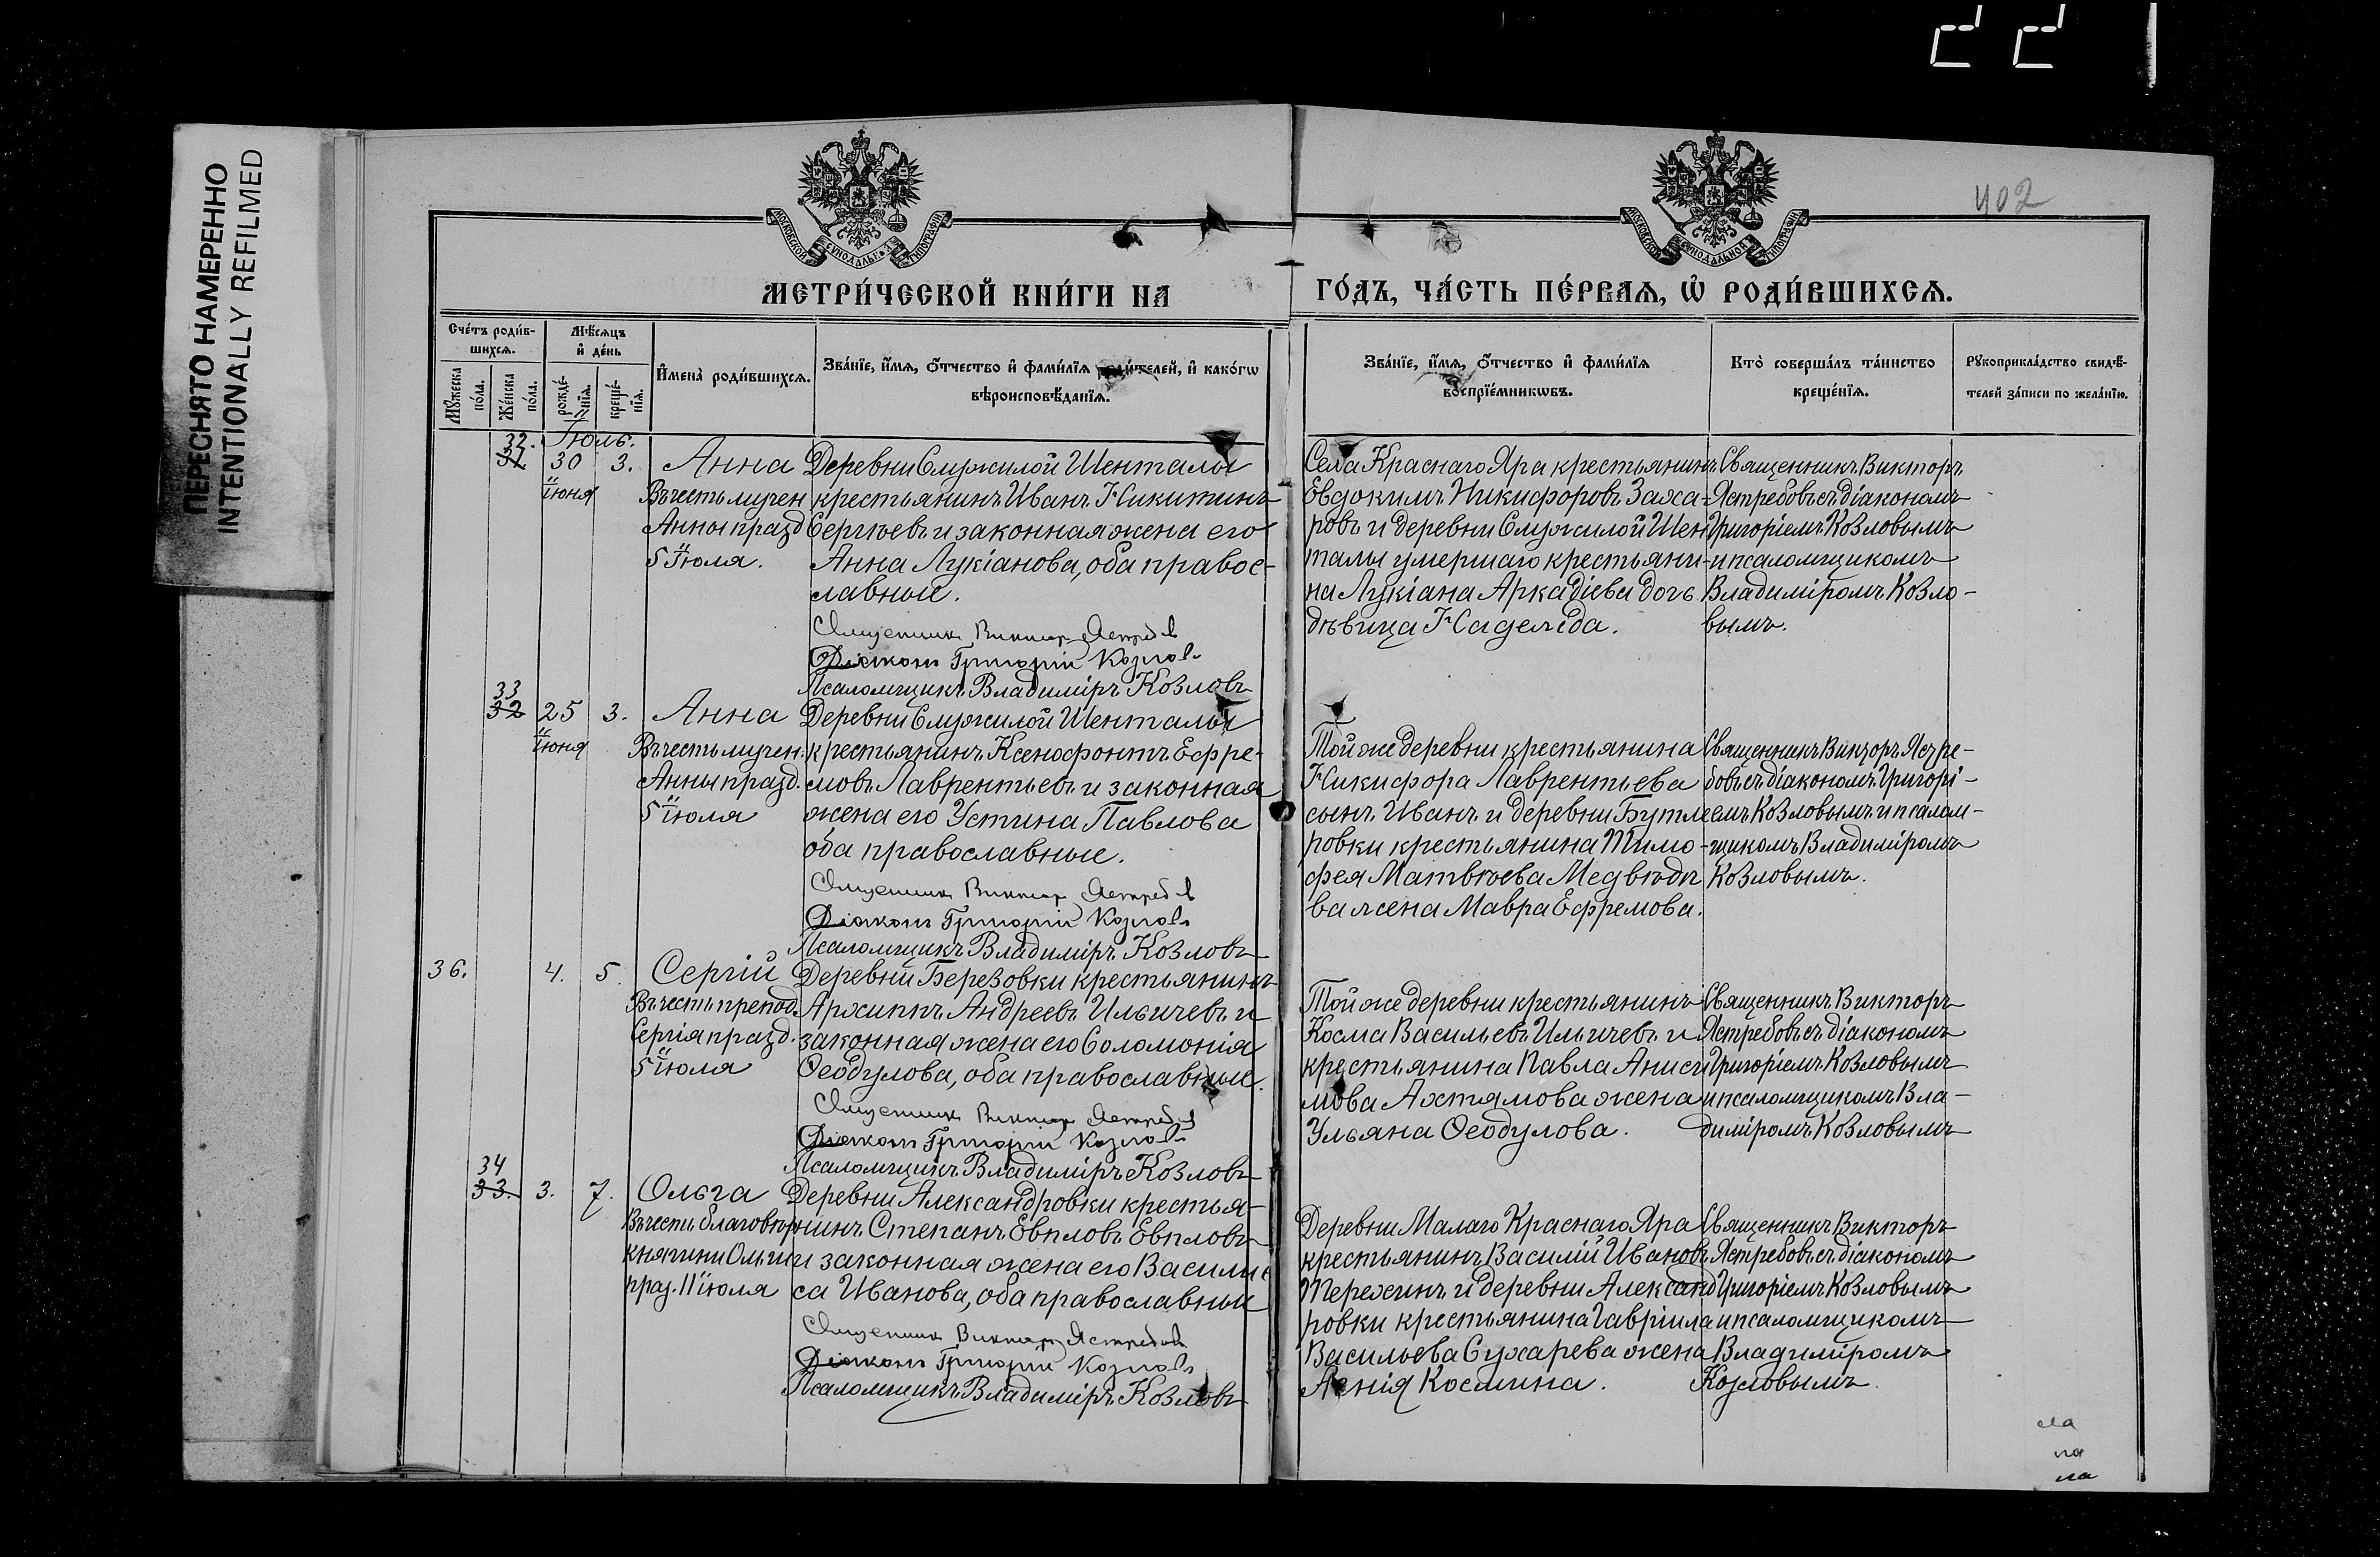 ПЕРЕСНЯТО НАМЕРЕННО
INTENTIONALLY REFILMED
402
МОСКОВСКОЙ СѴНОДАЛЬНОЙ ТИПОГРАФІИ
МОСКОВСКОЙ СѴНОДАЛЬНОЙ ТИПОГРАФІИ
МЕТРИ́ЧЕСКОЙ КНИ́ГИ НА
ГО́ДЪ, ЧА́СТЬ ПЕ́РВАЯ, Ѡ РОДИ́ВШИХСЯ.
Сче́тъ роди́в-
шихся.
Мꙋ́жеска по́ла.
Же́нска по́ла.
Мѣ́сяцъ
и҆ де́нь
рожде́-
нїѧ.
креще́-
нїѧ.
И҆мена̀ роди́вшихся.
Зва́нїе, и҆́мя, ѻ҆́тчество и҆ фами́лїя роди́телей, и҆ како́гѡ
вѣроисповѣ́данїя.
Зва́нїе, и҆́мя, ѻ҆́тчество и҆ фами́лїя
воспрїе́мникѡвъ.
Кто̀ соверша́лъ та́инство
креще́нїя.
Рꙋкоприкла́дство свидѣ́-
телей за́писи по жела́нїю.
Іюль.
32.
31
30 3.
іюня
Анна
Въ честь мучен
Анны празд
5 іюля.
Деревни Служилой Шенталы
крестьянинъ Иванъ Никитинъ
Сергѣевъ и законная жена его
Анна Лукіанова, оба правос-
лавные.
Священникъ Викторъ Ястребовъ
Діаконъ Григорій Козловъ
Псаломщикъ Владиміръ Козловъ
Села Краснаго Яра крестьянинъ
Евдокимъ Никифоровъ Заха-
ровъ и деревни Служилой Шен
талы умершаго крестьяни-
на Лукіана Аркадіева дочь
дѣвица
Священникъ Викторъ
Ястребовъ съ діакономъ
Григоріемъ Козловымъ
и псаломщикомъ
Владиміромъ Козло-
вымъ.
33
32
25 3.
іюня
Анна
Въ честь мучен.
Анны празд.
5 іюля
Деревни Служилой Шенталы
крестьянинъ Ксенофонтъ Ефре-
мовъ Лаврентьевъ и законная
жена его Устина Павлова
оба православные.
Священникъ Викторъ Ястребовъ
Діаконъ Григорій Козловъ
Псаломщикъ Владиміръ Козловъ
Той же деревни крестьянина
Никифора Лаврентьева
сынъ Иванъ и деревни Бутле
ровки крестьянина Тимо-
фея Матвѣева Медвѣде
ва жена Мавра Ефремова.
Священникъ Викторъ Ястре-
бовъ съ діакономъ Григорі-
емъ Козловымъ и псалом-
щикомъ Владиміромъ
Козловымъ.
36.
4. 5.
Сергій
Въ честь препод.
Сергія празд.
5 іюля
Деревни Березовки крестьянинъ
Архиппъ Андреевъ Ильичевъ и
законная жена его Соломонія
Ѳеодулова, оба православные.
Священникъ Викторъ Ястребовъ
Діаконъ Григорій Козловъ
Псаломщикъ Владиміръ Козловъ
Той же деревни крестьянинъ
Косма Васильевъ Ильичевъ и
крестьянина Павла Аниси
мова Ахтямова жена
Ульяна Ѳеодулова.
Священникъ Викторъ
Ястребовъ съ діакономъ
Григоріемъ Козловымъ
и псаломщикомъ Вла-
диміромъ Козловымъ
34
33.
3. 7.
Ольга
Въ честь благовѣр
княгини Ольги
праз. 11 іюля
Деревни Александровки крестья-
нинъ Степанъ Евпловъ Евпловъ
и законная жена его Васили
са Иванова, оба православные
Священникъ Викторъ Ястребовъ
Діаконъ Григорій Козловъ
Псаломщикъ Владиміръ Козловъ
Деревни Малаго Краснаго Яра
крестьянинъ Василій Ивановъ
Терехинъ и деревни Александ
ровки крестьянина Гавріила
Васильева Сухарева жена
Агнія Космина.
Священникъ Викторъ
Ястребовъ съ діакономъ
Григоріемъ Козловымъ
и псаломщикомъ
Владиміромъ
Козловымъ.